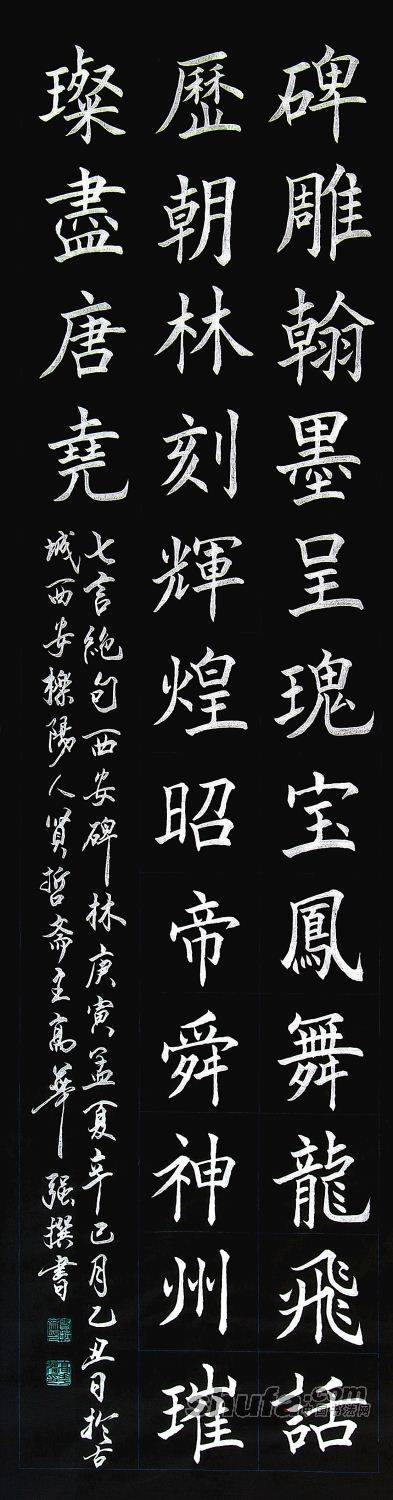 碑雕翰墨呈瑰宝鳳舞龍飛話
歷朝林刻輝煌昭帝舜神州璀
璨盡唐堯
七言絶句西安碑林庚寅孟夏辛巳月乙丑日於古
城西安櫟陽人贤哲斋主高華强撰書